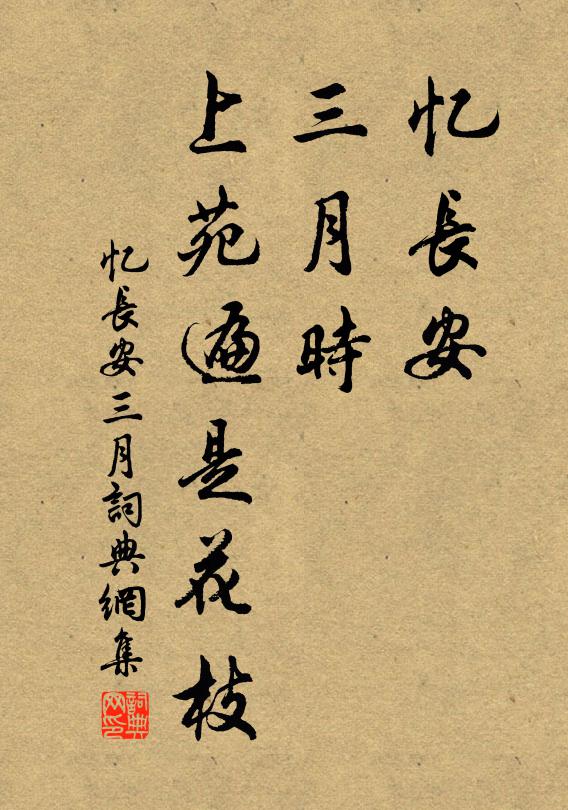 忆長安
三月時
上苑遍是花枝
忆長安三月詞典網集
詞典网印